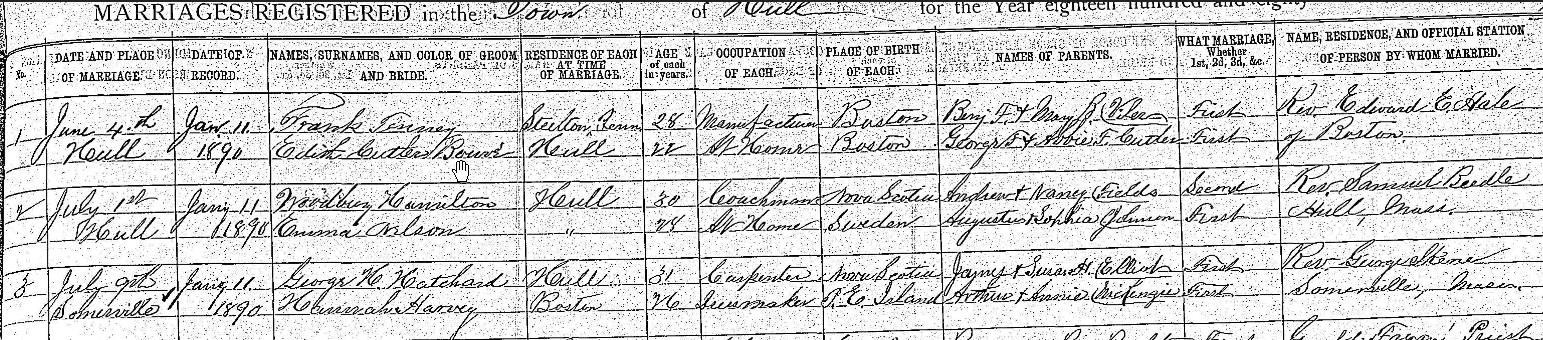 MARRIAGES REGISTERED in the Town of Hull for the Year eighteen hundred and eighty
No. DATE AND PLACE OF MARRIAGE. DATE OF RECORD. NAMES, SURNAMES, AND COLOR OF GROOM AND BRIDE. RESIDENCE OF EACH AT TIME OF MARRIAGE. AGE of each in years. OCCUPATION OF EACH. PLACE OF BIRTH OF EACH. NAMES OF PARENTS. WHAT MARRIAGE, Whether 1st, 2d, 3d, &c. NAME, RESIDENCE, AND OFFICIAL STATION OF PERSON BY WHOM MARRIED.
1 June 4th Jan. 11 Frank Tenney Steelton, 28 Manufacturer Boston Benj. F. & Mary J. First Rev Edward E. Hale
Hull 1890 Edith Cutler Bouvé Hull 22 At Home Boston George F & Abbie F. Cutler First of Boston
2 July 1st Jany 11 Woodbury Hamilton Hull 30 Coachman Nova Scotia Andrew & Nancy Fields Second Rev Samuel Beedle
Hull 1890 Emma Nilson " At Home Sweden Augustus & Sophia First Hull, Mass.
3 July 9th Jany 11 George H. Hatchard Hull 31 Carpenter Nova Scotia James & Susan H. Elliot First Rev George Skene
Somerville 1890 Hannah Harvey Boston 26 P. E. Island Arthur & Annie McKenzie First Somerville, Mass.
Priest